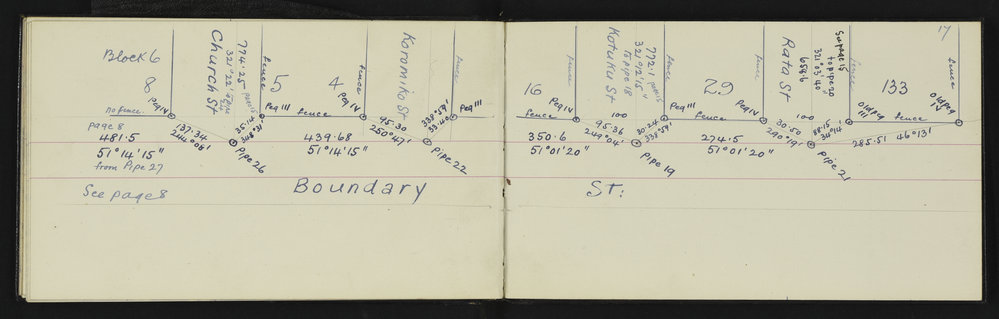 17
Block 6
8
Church St
774.25
fence
5
4
fence
Koromiko St
fence
no fence
Peg IV
Peg III
fence
Peg IV
Peg III
page 8
137.34
244°08'
35.14
348°31'
95.30
250°47'
338°59'
33.40
481.5
51°14'15"
from Pipe 27
Pipe 26
439.68
51°14'15"
Pipe 22
See page 8
Boundary St:
16
fence
Kotuku St
772.1
321°02'15"
to pipe 18
fence
29
fence
Rata St
to pipe 20
321°03'40"
fence
133
fence
Peg IV
100
Peg III
Peg IV
100
Old Peg
III
fence
Old Peg
IV
350.6
51°01'20"
95.36
249°04'
30.24
338°59'
Pipe 19
274.5
51°01'20"
30.50
290°19'
88.15
34°14'
Pipe 21
285.51
46°13'